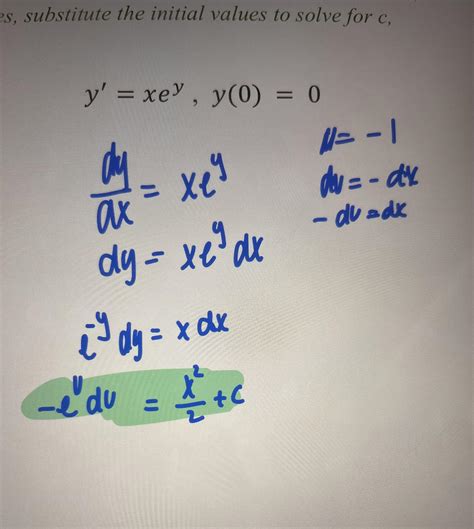 es, substitute the initial values to solve for c,
y' = xe^y , y(0) = 0
dy/dx = xe^y
dy = xe^y dx
e^-y dy = x dx
-e^u du = x^2/2 + c
u = -1
du = -dx
- du = dx